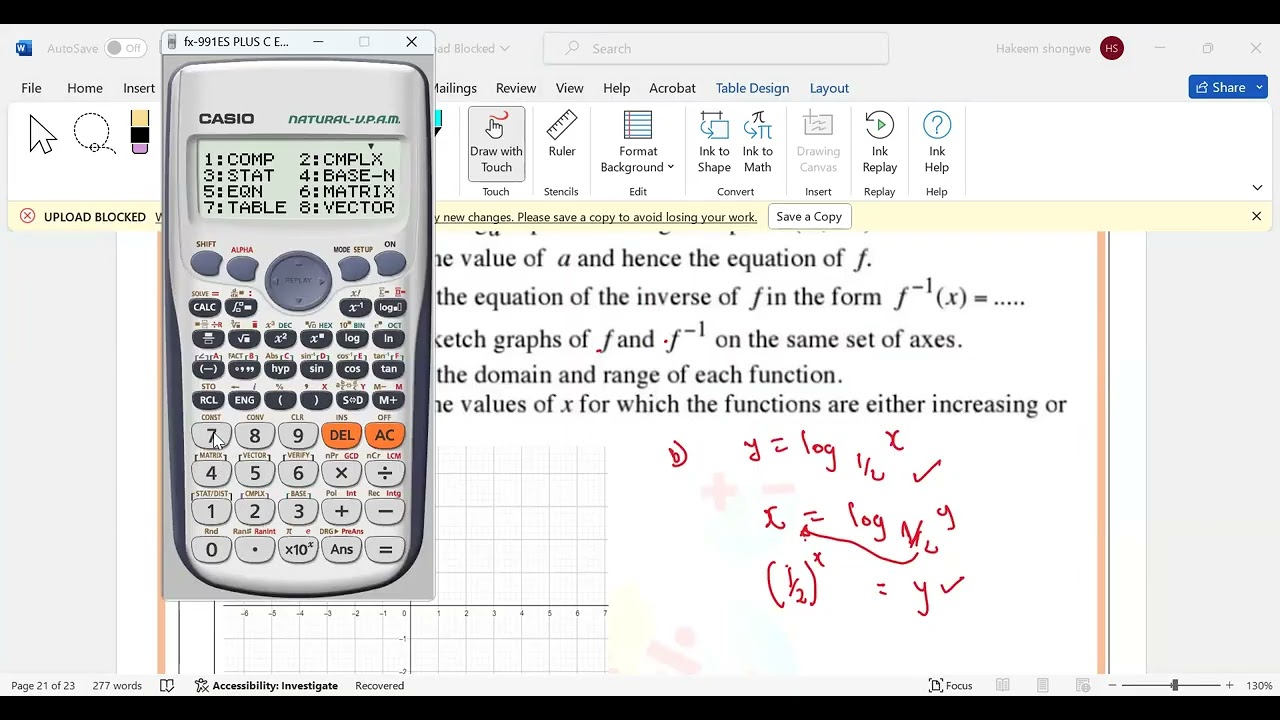 fx-991ES PLUS C E...
AutoSave Off
oad Blocked
Search
Hakeem shongwe HS
File Home Insert Mailings Review View Help Acrobat Table Design Layout Share
Draw with Touch
Ruler
Format Background
Ink to Shape
Ink to Math
Drawing Canvas
Ink Replay
Ink Help
Touch Stencils Edit Convert Insert Replay Help
UPLOAD BLOCKED
y new changes. Please save a copy to avoid losing your work. Save a Copy
CASIO NATURAL-V.P.A.M.
1:COMP 2:CMPLX
3:STAT 4:BASE-N
5:EQN 6:MATRIX
7:TABLE 8:VECTOR
SHIFT ALPHA MODE SETUP ON
REPLAY
SOLVE =
CALC x! x⁻¹ log
x³ DEC HEX 10ˣ BIN eˣ OCT
x² log ln
FACT B Abs C sin⁻¹ D cos⁻¹ E tan⁻¹ F
(−) hyp sin cos tan
STO i % , X Y M− M
RCL ENG ( ) S⇔D M+
CONST CONV CLR INS OFF
7 8 9 DEL AC
MATRIX VECTOR VERIFY nPr GCD nCr LCM
4 5 6 × ÷
STAT/DIST CMPLX BASE Pol Int Rec Intg
1 2 3 + −
Rnd Ran# RanInt π e DRG▶ PreAns
0 • ×10ˣ Ans =
he value of a and hence the equation of f.
the equation of the inverse of f in the form f⁻¹(x) = .....
ketch graphs of f and f⁻¹ on the same set of axes.
the domain and range of each function.
he values of x for which the functions are either increasing or
b) y = log 1/2 x ✓
x = log 1/2 y
(1/2)ˣ = y ✓
−6 −5 −4 −3 −2 −1 0 1 2 3 4 5 6 7
−1
−2
Page 21 of 23 277 words Accessibility: Investigate Recovered Focus 130%